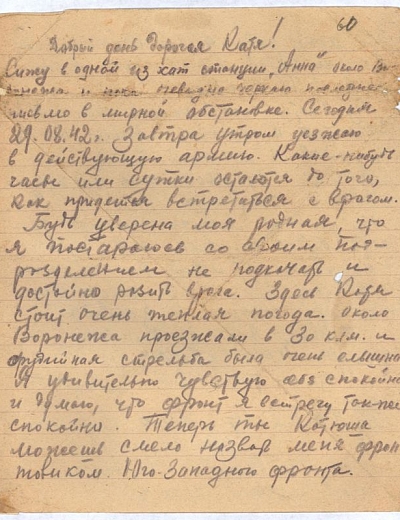 60
Добрый день Дорогая Катя!
Сижу в одной из хат станции „Анна" около Во-
ронежа и пока черкаю последнее
письмо в мирной обстановке. Сегодня
29.08.42г. Завтра утром уезжаю
в действующую армию. Какие-нибудь
часы или сутки остаются до того,
как придется встретиться с врагом.
Будь уверена моя родная, что
я постараюсь со своим под-
разделением не подкачать и
достойно разить врага. Здесь Катя
стоит очень теплая погода. Около
Воронежа проезжали в 30 клм. и
орудийная стрельба была очень слышна
Я удивительно чувствую себя спокойно
и думаю, что фронт я встречу так-же
спокойно. Теперь ты Катюша
можешь смело назвать меня фрон
товиком. Юго-Западного фронта.